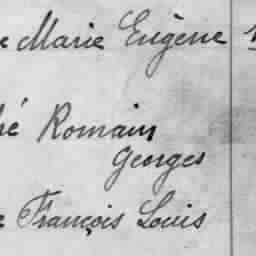 Marie Eugène
Romain
Georges
François Louis